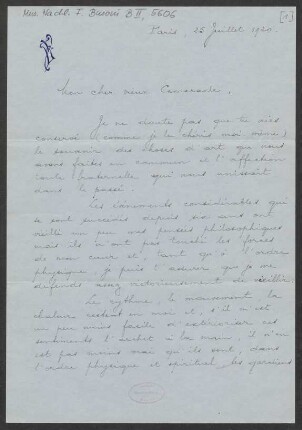 Mus. Nachl. F. Busoni B II, 5606
[1]
Paris, 25 Juillet 1920.
Mon cher vieux Camarade,
Je ne doute pas que tu aies
conservé (comme je la chéris moi-même)
le souvenir des choses d'art que nous
avons faites en commun et l'affection
toute fraternelle qui nous unissait
dans le passé.
Les événements considérables qui
se sont succédés depuis six ans ont
vieilli un peu mes pensées philosophiques
mais ils n'ont pas touché les forces
de mon cœur et, tant qu'à l'ordre
physique, je puis t'assurer que je me
défends assez victorieusement de vieillir.
Le rythme, le mouvement, la
chaleur restent en moi et, s'il m'est
un peu moins facile d'extérioriser ces
sentiments l'archet à la main, il n'en
est pas moins vrai qu'ils sont, dans
l'ordre physique et spirituel, les